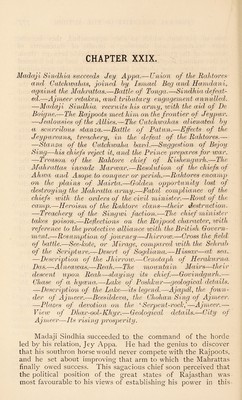 CHAPTER XXIX.
Madaji Sindhia succeeds Jey Appa.—Union of the Rahtores
and Catchwahas, joined by Ismael Beg and Hamdani,
against the Mahrattas.—Battle of Tonga.—Sindhia defeat-
ed.—Ajmeer retaken, and tributary engagement annulled.
—Madaji Sindhia recruits his army, with the aid of De
Boigne.—The Rajpoots meet him on the frontier of Jeypur.
—Jealousies of the Allies.—The Catchwahas alienated by
a scurrilous stanza.—Battle of Patun.—Effects of the
Jeypureans, treachery, in the defeat of the Rahtores.—
—Stanza of the Catchwaha bard.—Suggestion of Bejoy
Sing—his chiefs reject it, and the Prince prepares for war.
—Treason of the Rahtore chief of Kishengurh.—The
Mahrattas invade Marwar.—Resolution of the chiefs of
Ahwa and Asope to conquer or perish.—Rahtores encamp
on the plains of Mairta.—Golden opportunity lost of
destroying the Mahratta army.—Fatal compliance of the
chiefs with the orders of the civil minister.—Rout of the
camp.—Heroism of the Rahtore clans—their destruction.
—Treachery of the Singwi faction.—The chief minister
takes poison.—Reflections on the Rajpoot character, with
reference to the protective alliance with the British Govern-
ment.—Resumption of journey—Jhirrow.—Cross the field
of battle.—See-kote, or Mirage, compared with the Sehrab
of the Scripture.—Desert of Sogdiana.—Hissar—at sea.
—Description of the Jhirrow.—Cenotaph of Herakurna
Das.—Alneawas—Reah.—The mountain Mairs—their
descent upon Reah—slaying its chief.—Govindgurh.—
Chase of a hyena.—Lake of Poshkur—geological details.
—Description of the Lake—its legend.—Ajapal, the foun-
der of Ajmeer.—Beesildeva, the Chohan King of Ajmeer.
—Places of devotion on the 'Serpent-rock.'—Ajmeer.—
View of Dhar-ool-Khyr.—Geological details.—City of
Ajmeer—Its rising prosperity.
Madaji Sindhia succeeded to the command of the horde
led by his relation, Jey Appa. He had the genius to discover
that his southron horse would never compete with the Rajpoots,
and he set about improving that arm to which the Mahrattas
finally owed success. This sagacious chief soon perceived that
the political position of the great states of Rajasthan was
most favourable to his views of establishing his power in this